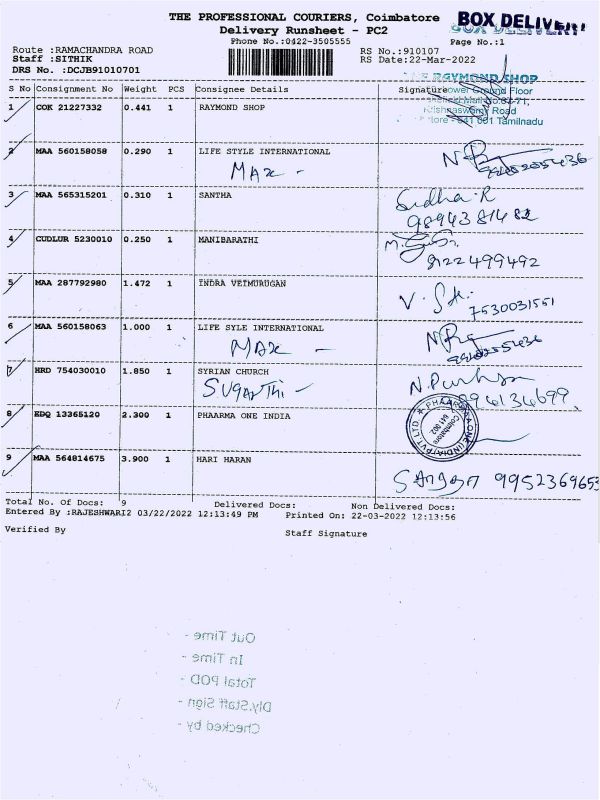 THE PROFESSIONAL COURIERS, Coimbatore
BOX DELIVERY
Delivery Runsheet - PC2
Phone No.:0422-3505555
Page No.:1
Route :RAMACHANDRA ROAD
RS No.:910107
Staff :SITHIK
RS Date:22-Mar-2022
DRS No. :DCJB91010701
S No Consignment No Weight PCS Consignee Details Signature
1 COK 21227332 0.441 1 RAYMOND SHOP
RAYMOND SHOP
Ground Floor
Road
641 001 Tamilnadu
2 MAA 560158058 0.290 1 LIFE STYLE INTERNATIONAL
MAX -
3 MAA 565315201 0.310 1 SANTHA
Sudha.R
9894381482
4 CUDLUR 5230010 0.250 1 MANIBARATHI
9122499492
5 MAA 287792980 1.472 1 INDRA VETMURUGAN
7530031551
6 MAA 560158063 1.000 1 LIFE SYLE INTERNATIONAL
MAX -
7 HRD 754030010 1.850 1 SYRIAN CHURCH
SUGANTHI -
8 EDQ 13365120 2.300 1 PHAARMA ONE INDIA
PHAARMAA ONE (INDIA) PVT.LTD.
Coimbatore
641 002
9 MAA 564814675 3.900 1 HARI HARAN
9952369653
Total No. Of Docs: 9 Delivered Docs: Non Delivered Docs:
Entered By :RAJESHWARI2 03/22/2022 12:13:49 PM Printed On: 22-03-2022 12:13:56
Verified By Staff Signature
Out Time -
In Time -
Total POD -
Dly.Staff Sign -
Checked by -